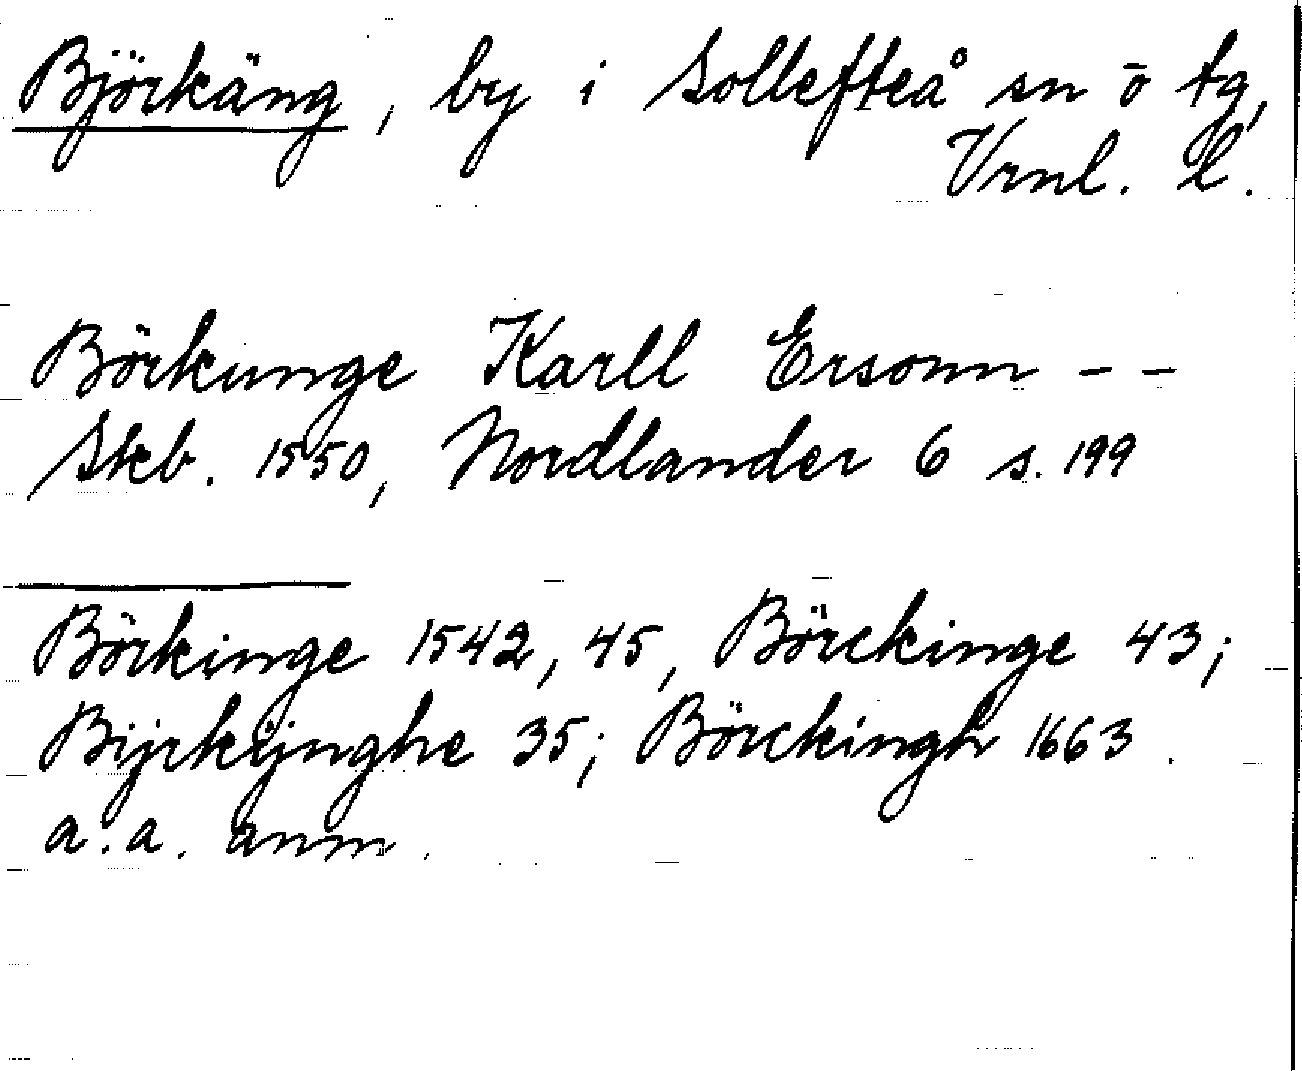 Björkäng, by i Sollefteå sn ō tg,
Vrnl. l.
Börkunge Karll Ersonn - -
Skb. 1550, Nordlander 6 s. 199
Börkinge 1542, 45, Börckinge 43;
Bijrkijnghe 35; Börckingh 1663.
a.a. anm.